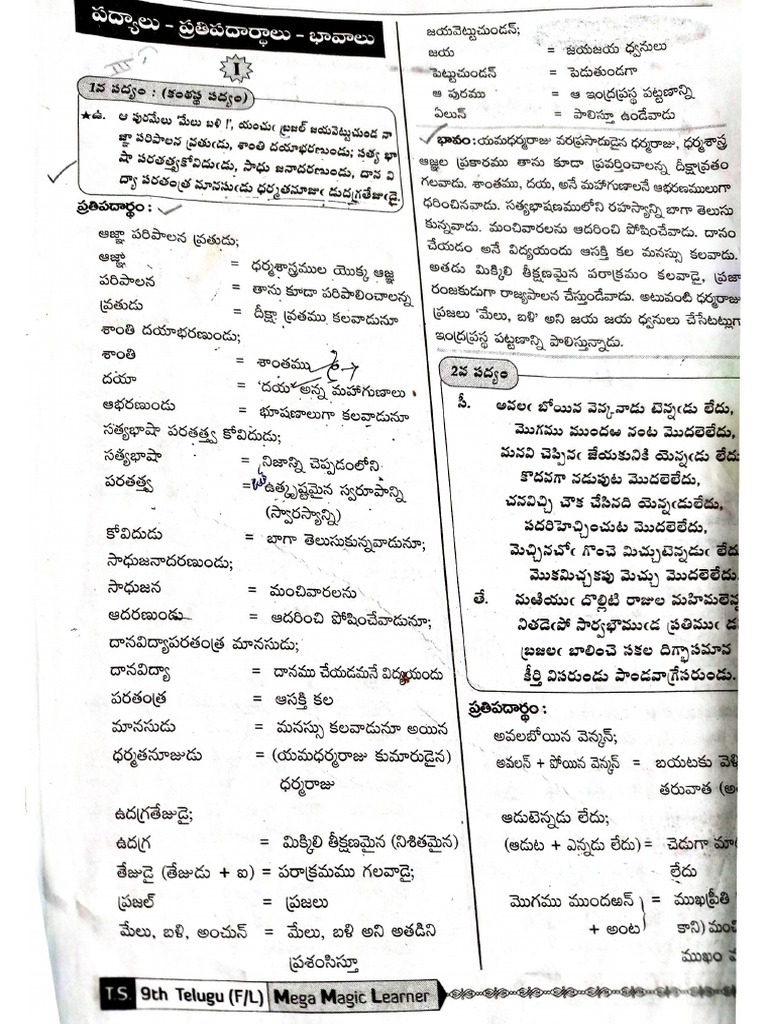 పద్యాలు - ప్రతిపదార్థాలు - భావాలు
I
1వ పద్యం : (కంఠస్థ పద్యం)
★ఉ. ఆ పురమేలు 'మేలు బళి !', యంచుఁ బ్రజల్ జయవెట్టుచుండ నా
జ్ఞా పరిపాలన వ్రతుఁడు, శాంతి దయాభరణుండు; సత్య భా
షా పరతత్త్వకోవిదుఁడు, సాధు జనాదరణుండు, దాన వి
ద్యా పరతంత్ర మానసుఁడు ధర్మతనూజుఁ డుదగ్రతేజుఁడై.
ప్రతిపదార్థం :
ఆజ్ఞా పరిపాలన వ్రతుడు;
ఆజ్ఞా = ధర్మశాస్త్రముల యొక్క ఆజ్ఞ
పరిపాలన = తాను కూడా పరిపాలించాలన్న
వ్రతుడు = దీక్షా వ్రతము కలవాడునూ
శాంతి దయాభరణుండు;
శాంతి = శాంతము
దయా = 'దయ' అన్న మహాగుణాలు
ఆభరణుండు = భూషణాలుగా కలవాడునూ
సత్యభాషా పరతత్త్వ కోవిదుడు;
సత్యభాషా = నిజాన్ని చెప్పడంలోని
పరతత్త్వ = ఉత్కృష్టమైన స్వరూపాన్ని
(స్వారస్యాన్ని)
కోవిదుడు = బాగా తెలుసుకున్నవాడునూ;
సాధుజనాదరణుండు;
సాధుజన = మంచివారలను
ఆదరణుండు = ఆదరించి పోషించేవాడునూ;
దానవిద్యాపరతంత్ర మానసుడు;
దానవిద్యా = దానము చేయడమనే విద్యయందు
పరతంత్ర = ఆసక్తి కల
మానసుడు = మనస్సు కలవాడునూ అయిన
ధర్మతనూజుడు = (యమధర్మరాజు కుమారుడైన)
ధర్మరాజు
ఉదగ్రతేజుడై;
ఉదగ్ర = మిక్కిలి తీక్షణమైన (నిశితమైన)
తేజుడై (తేజుడు + ఐ) = పరాక్రమము గలవాడై;
ప్రజల్ = ప్రజలు
మేలు, బళి, అంచున్ = మేలు, బళి అని అతడిని
ప్రశంసిస్తూ
జయవెట్టుచుండన్;
జయ = జయజయ ధ్వనులు
పెట్టుచుండన్ = పెడుతుండగా
ఆ పురము = ఆ ఇంద్రప్రస్థ పట్టణాన్ని
ఏలున్ = పాలిస్తూ ఉండేవాడు
భావం: యమధర్మరాజు వరప్రసాదుడైన ధర్మరాజు, ధర్మశాస్త్ర
ఆజ్ఞల ప్రకారము తాను కూడా ప్రవర్తించాలన్న దీక్షావ్రతం
గలవాడు. శాంతము, దయ, అనే మహాగుణాలనే ఆభరణములుగా
ధరించినవాడు. సత్యభాషణములోని రహస్యాన్ని బాగా తెలుసు
కున్నవాడు. మంచివారలను ఆదరించి పోషించేవాడు. దానం
చేయడం అనే విద్యయందు ఆసక్తి కల మనస్సు కలవాడు.
అతడు మిక్కిలి తీక్షణమైన పరాక్రమం కలవాడై, ప్రజా
రంజకుడుగా రాజ్యపాలన చేస్తుండేవాడు. అటువంటి ధర్మరాజు
ప్రజలు 'మేలు, బళి' అని జయ జయ ధ్వనులు చేసేటట్లుగా
ఇంద్రప్రస్థ పట్టణాన్ని పాలిస్తున్నాడు.
2వ పద్యం
సీ. అవలఁ బోయిన వెన్కనాడు టెన్నఁడు లేదు,
మొగము ముందఱ నంట మొదలెలేదు,
మనవి చెప్పినఁ జేయకునికి యెన్నఁడు లేదు
కొదవగా నడుపుట మొదలెలేదు,
చనవిచ్చి చౌక చేసినది యెన్నఁడులేదు,
పదరిహెచ్చించుట మొదలెలేదు,
మెచ్చినచోఁ గొంచె మిచ్చుటెన్నడుఁ లేదు
మొకమిచ్చకపు మెచ్చు మొదలెలేదు.
తే. మఱియుఁ దొల్లిటి రాజుల మహిమలెన్న
నితడెపో సార్వభౌముఁడ ప్రతిముఁ డ
బ్రజలఁ బాలించె సకల దిగ్భాసమాన
కీర్తి విసరుండు పాండవాగ్రేసరుండు.
ప్రతిపదార్థం :
అవలబోయిన వెన్కన్;
అవలన్ + పోయిన వెన్కన్ = బయటకు వెళ
తరువాత
ఆడుటెన్నడు లేదు;
(ఆడుట + ఎన్నడు లేదు) = చెడుగా మా
లేదు
మొగము ముందఱన్ = ముఖప్రీతి
+ అంట కాని) మంచి
ముఖం
T.S. 9th Telugu (F/L) Mega Magic Learner